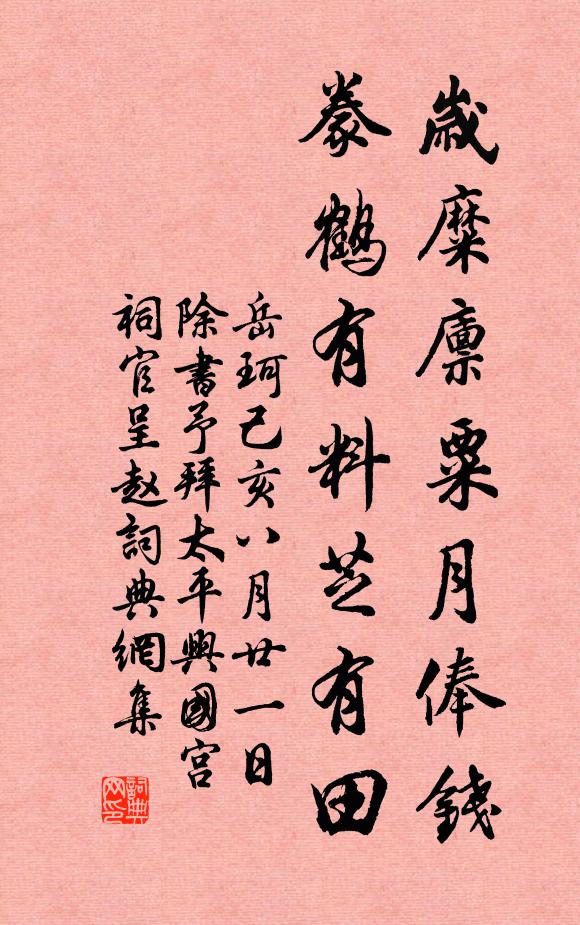 歲糜廩粟月俸錢
豢鶴有料芝有田
岳珂己亥八月廿一日
除書予拜太平興國宮
祠官呈赵詞典網集
詞典网印